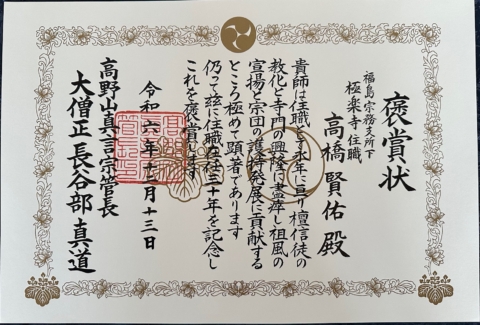 褒賞状
福島宗務支所下
極楽寺住職
高橋賢佑 殿
貴師は住職として永年に亘り檀信徒の
教化と寺門の興隆に盡瘁し祖風の
宣揚と宗団の護持発展に貢献する
ところ極めて顕著であります
仍って茲に住職在任三十年を記念し
これを褒賞します
令和六年十一月十三日
高野山真言宗管長
大僧正 長谷部真道